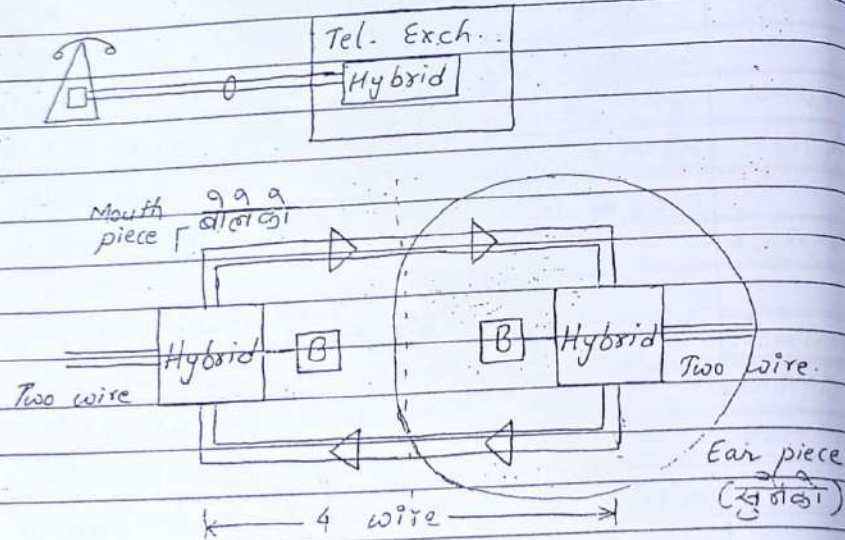 Tel. Exch.
Hybrid
Mouth
piece
Hybrid
B
B
Hybrid
Two wire
Two wire.
Ear piece
4 wire